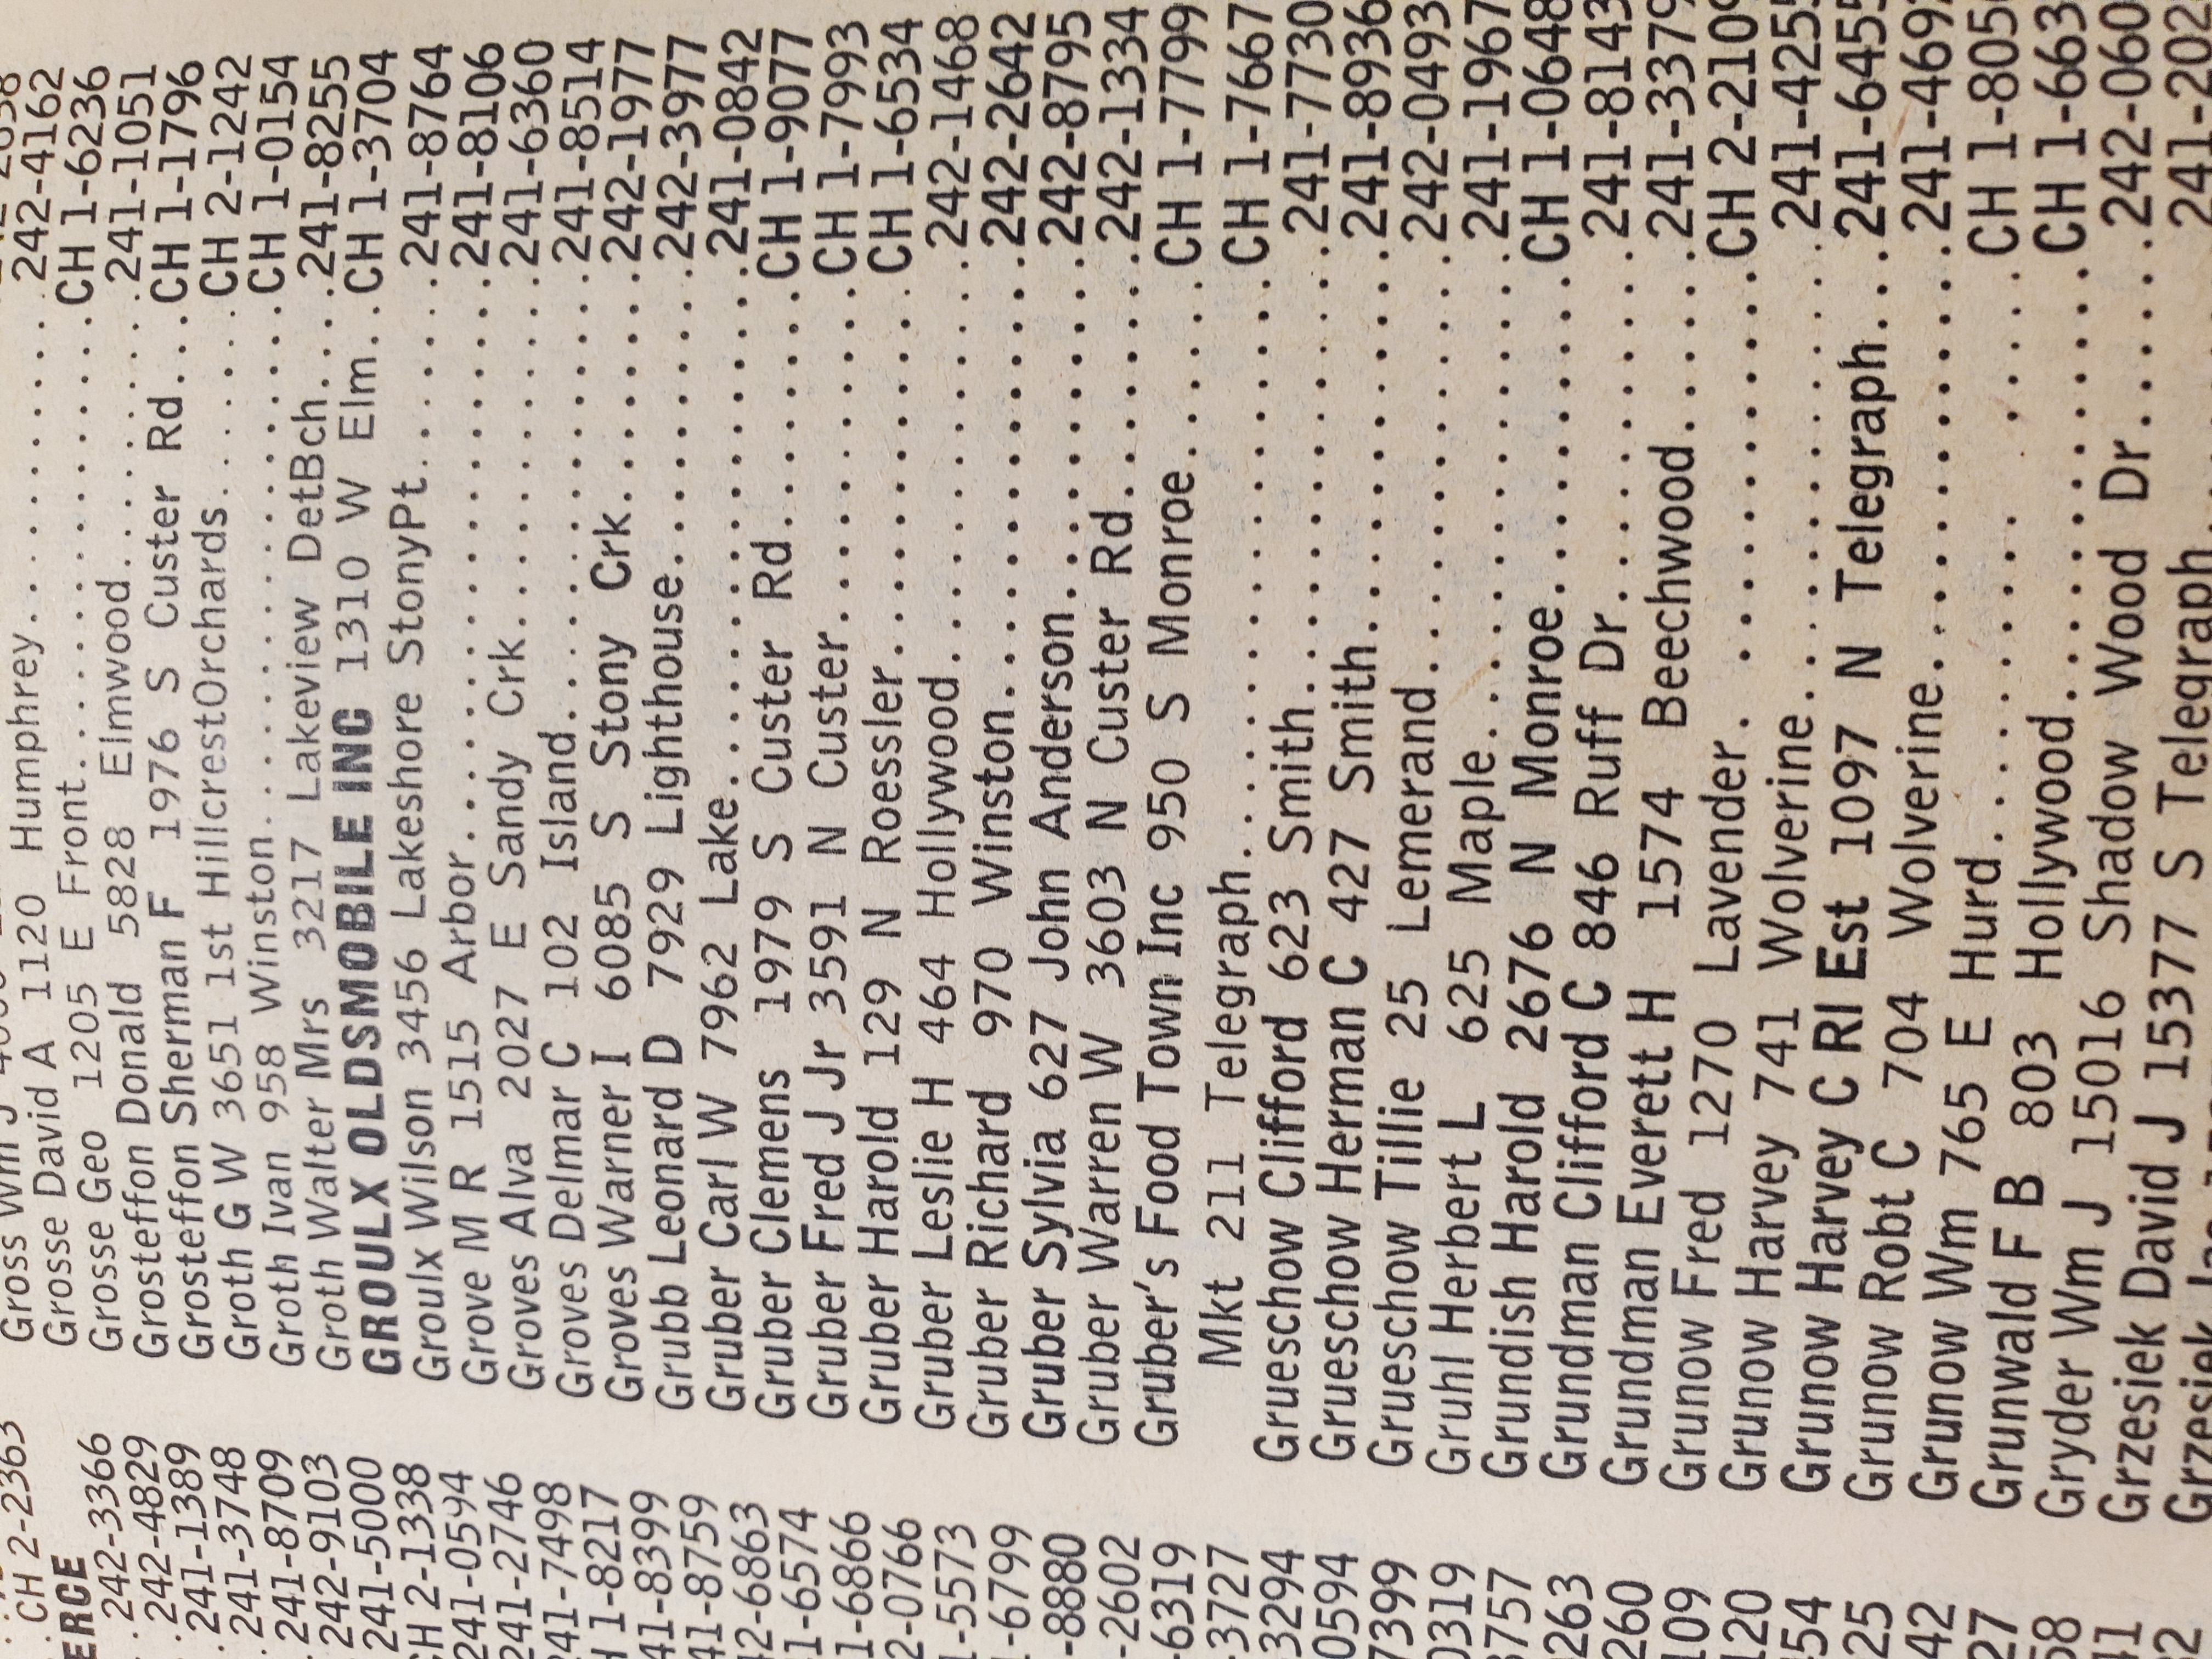 CH 2-2363
ERCE
242-3366
242-4829
241-1389
241-3748
241-8709
242-9103
241-5000
CH 2-1338
241-0594
241-2746
241-7498
H 1-8217
41-8399
41-8759
42-6863
1-6574
1-6866
2-0766
1-5573
-6799
-8880
-2602
-6319
3727
3294
0594
7399
0319
3757
263
260
109
120
54
25
42
27
58
41
Gross Wm J
Grosse David A 1120 Humphrey..........242-4162
Grosse Geo 1205 E Front..........CH 1-6236
Grosteffon Donald 5828 Elmwood..........241-1051
Grosteffon Sherman F 1976 S Custer Rd....CH 1-1796
Groth G W 3651 1st HillcrestOrchards......CH 2-1242
Groth Ivan 958 Winston..........CH 1-0154
Groth Walter Mrs 3217 Lakeview DetBch....241-8255
GROULX OLDSMOBILE INC 1310 W Elm..CH 1-3704
Groulx Wilson 3456 Lakeshore StonyPt......241-8764
Grove M R 1515 Arbor..........241-8106
Groves Alva 2027 E Sandy Crk..........241-6360
Groves Delmar C 102 Island..........241-8514
Groves Warner I 6085 S Stony Crk......242-1977
Grubb Leonard D 7929 Lighthouse........242-3977
Gruber Carl W 7962 Lake..........241-0842
Gruber Clemens 1979 S Custer Rd......CH 1-9077
Gruber Fred J Jr 3591 N Custer........CH 1-7993
Gruber Harold 129 N Roessler..........CH 1-6534
Gruber Leslie H 464 Hollywood..........242-1468
Gruber Richard 970 Winston..........242-2642
Gruber Sylvia 627 John Anderson........242-8795
Gruber Warren W 3603 N Custer Rd......242-1334
Gruber's Food Town Inc 950 S Monroe.....CH 1-7799
Mkt 211 Telegraph..........CH 1-7667
Grueschow Clifford 623 Smith..........241-7730
Grueschow Herman C 427 Smith........241-8936
Grueschow Tillie 25 Lemerand..........242-0493
Gruhl Herbert L 625 Maple..........241-1967
Grundish Harold 2676 N Monroe........CH 1-0648
Grundman Clifford C 846 Ruff Dr........241-8143
Grundman Everett H 1574 Beechwood......241-3379
Grunow Fred 1270 Lavender..........CH 2-2109
Grunow Harvey 741 Wolverine..........241-4255
Grunow Harvey C RI Est 1097 N Telegraph...241-6455
Grunow Robt C 704 Wolverine..........241-469
Grunow Wm 765 E Hurd..........CH 1-805
Grunwald F B 803 Hollywood..........CH 1-663
Gryder Wm J 15016 Shadow Wood Dr.....242-060
Grzesiek David J 15377 S Telegraph....241-202
Grzesiek